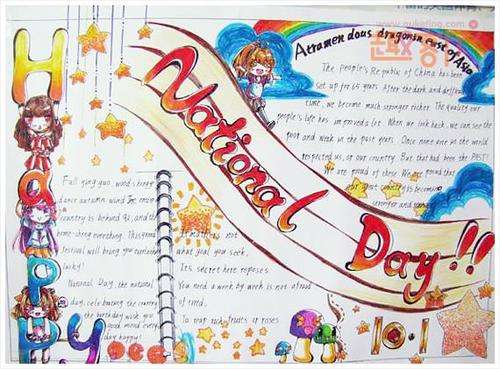 HAPPY
National Day!!
www.quketing.com
A tramendous dragonin east of Asia
The people's Republic of China has been
set up for 65 years. After the dark and
time, we become much stronger richer. The quality our
people's life has improved a lot. When we look back, we can see the
poor and week in the past years. Once none one in the world
respected us, or our country. But that had been the PAST!
We are proud of these. We are proud that
great country is becoming
stronger and
Fall
autumn wind
country is behind
festival will bring you
lucky!
National Day, the national
day, celebrating the country
the birthday wish you
good mind every
day happy!
It matters not
what goal you seek,
Its secret here reposes
You need a week by week is not afraid
of tired,
To top fruits of roses
10.1